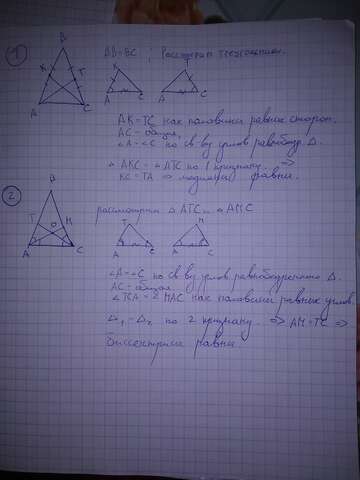 1
B
AB=BC; Рассмотрим треугольники.
K T K T
A C A C A C
AK=TC как половины равных сторон.
AC - общая,
∠A=∠C по св-ву углов равнобедр. Δ.
Δ AKC = Δ ATC по 1 признаку. =>
KC=TA => медианы равны.
2
B
рассмотрим Δ ATC и Δ AMC
T O M T M
A C A C A C
∠A=∠C по св-ву углов равнобедренного Δ.
AC - общая
∠TCA = ∠MAC как половины равных углов.
Δ₁=Δ₂ по 2 признаку. => AM=TC =>
Биссектрисы равны.